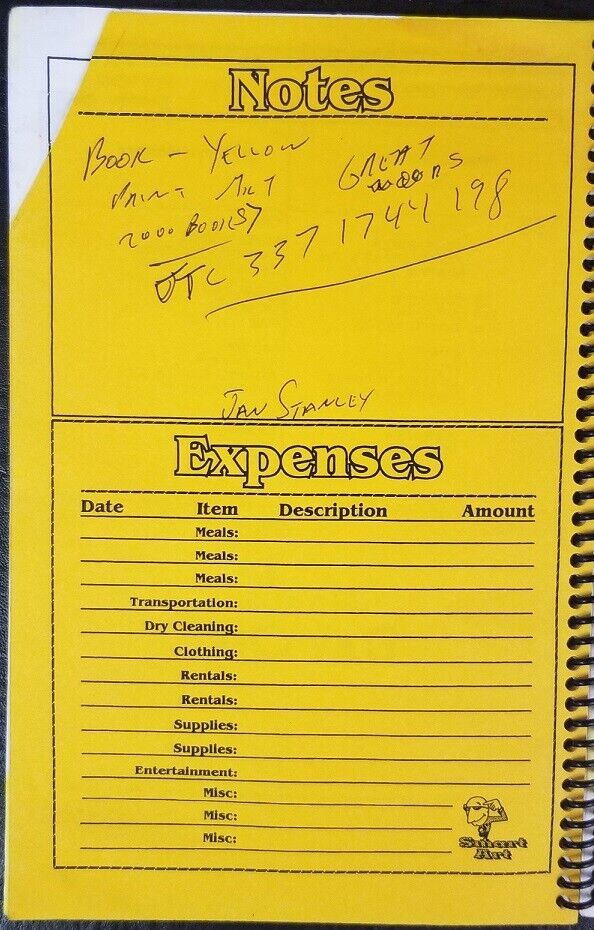 Notes
BOOK - YELLOW
GREAT
PRINT
2000 BOOKS?
337 1744 198
JAN STANLEY
Expenses
Date Item Description Amount
Meals:
Meals:
Meals:
Transportation:
Dry Cleaning:
Clothing:
Rentals:
Rentals:
Supplies:
Supplies:
Entertainment:
Misc:
Misc:
Misc:
Smart
Art